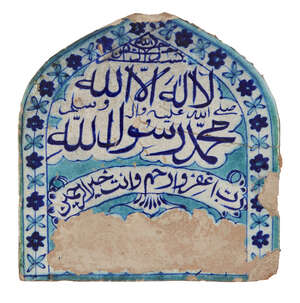 لا اله الا الله
صلى الله عليه واله وسلم
محمد رسول الله
رب اغفر وارحم وانت خير الرحمين